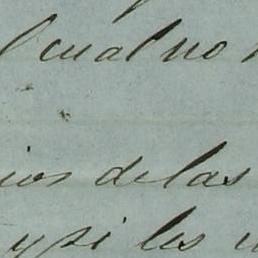 cual no
ios de las
y si les